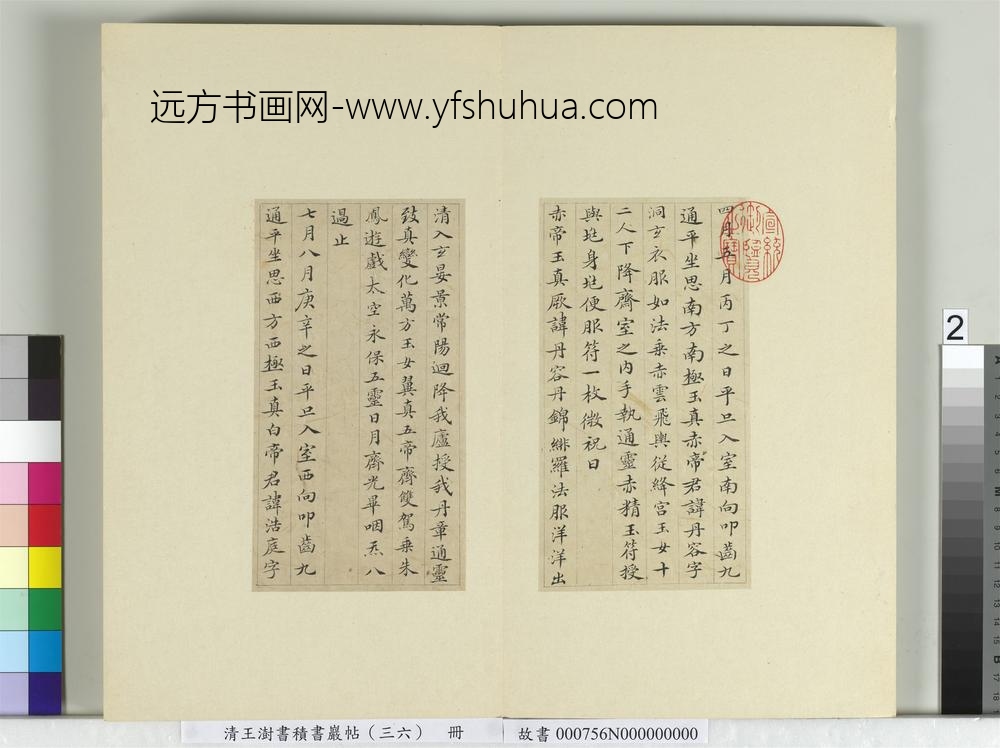 远方书画网-www.yfshuhua.com
四月五月丙丁之日平旦入室南向叩齒九
通平坐思南方南極玉真赤帝君諱丹容字
洞玄衣服如法乘赤雲飛輿從絳宮玉女十
二人下降齋室之內手執通靈赤精玉符授
與兆身兆便服符一枚微祝曰
赤帝玉真厥諱丹容丹錦緋羅法服洋洋出
清入玄晏景常陽迴降我廬授我丹章通靈
致真變化萬方玉女翼真五帝齊雙駕乘朱
鳳遊戲太空永保五靈日月齊光畢咽炁八
過止
七月八月庚辛之日平旦入室西向叩齒九
通平坐思西方西極玉真白帝君諱浩庭字
宣統御覽之寶
2
清王澍書積書巖帖（三六） 冊
故書 000756N000000000